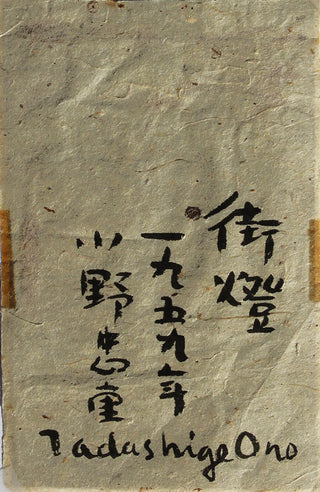 街燈
一九五九年
小野忠重
Tadashige Ono